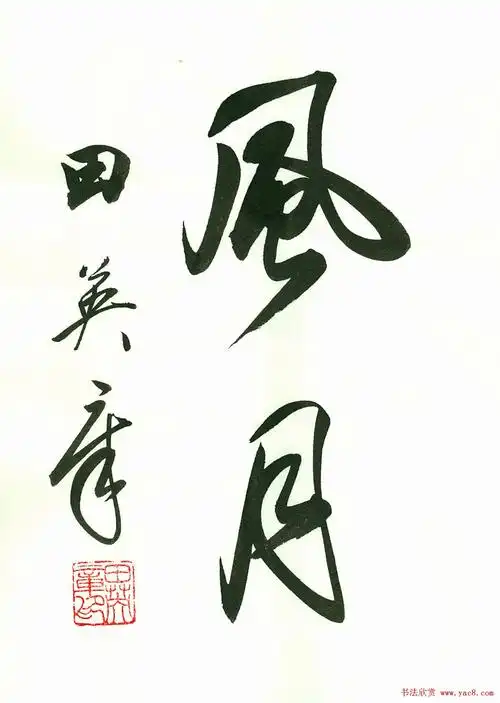 風月
田英章
田英章印
书法欣赏 www.yac8.com